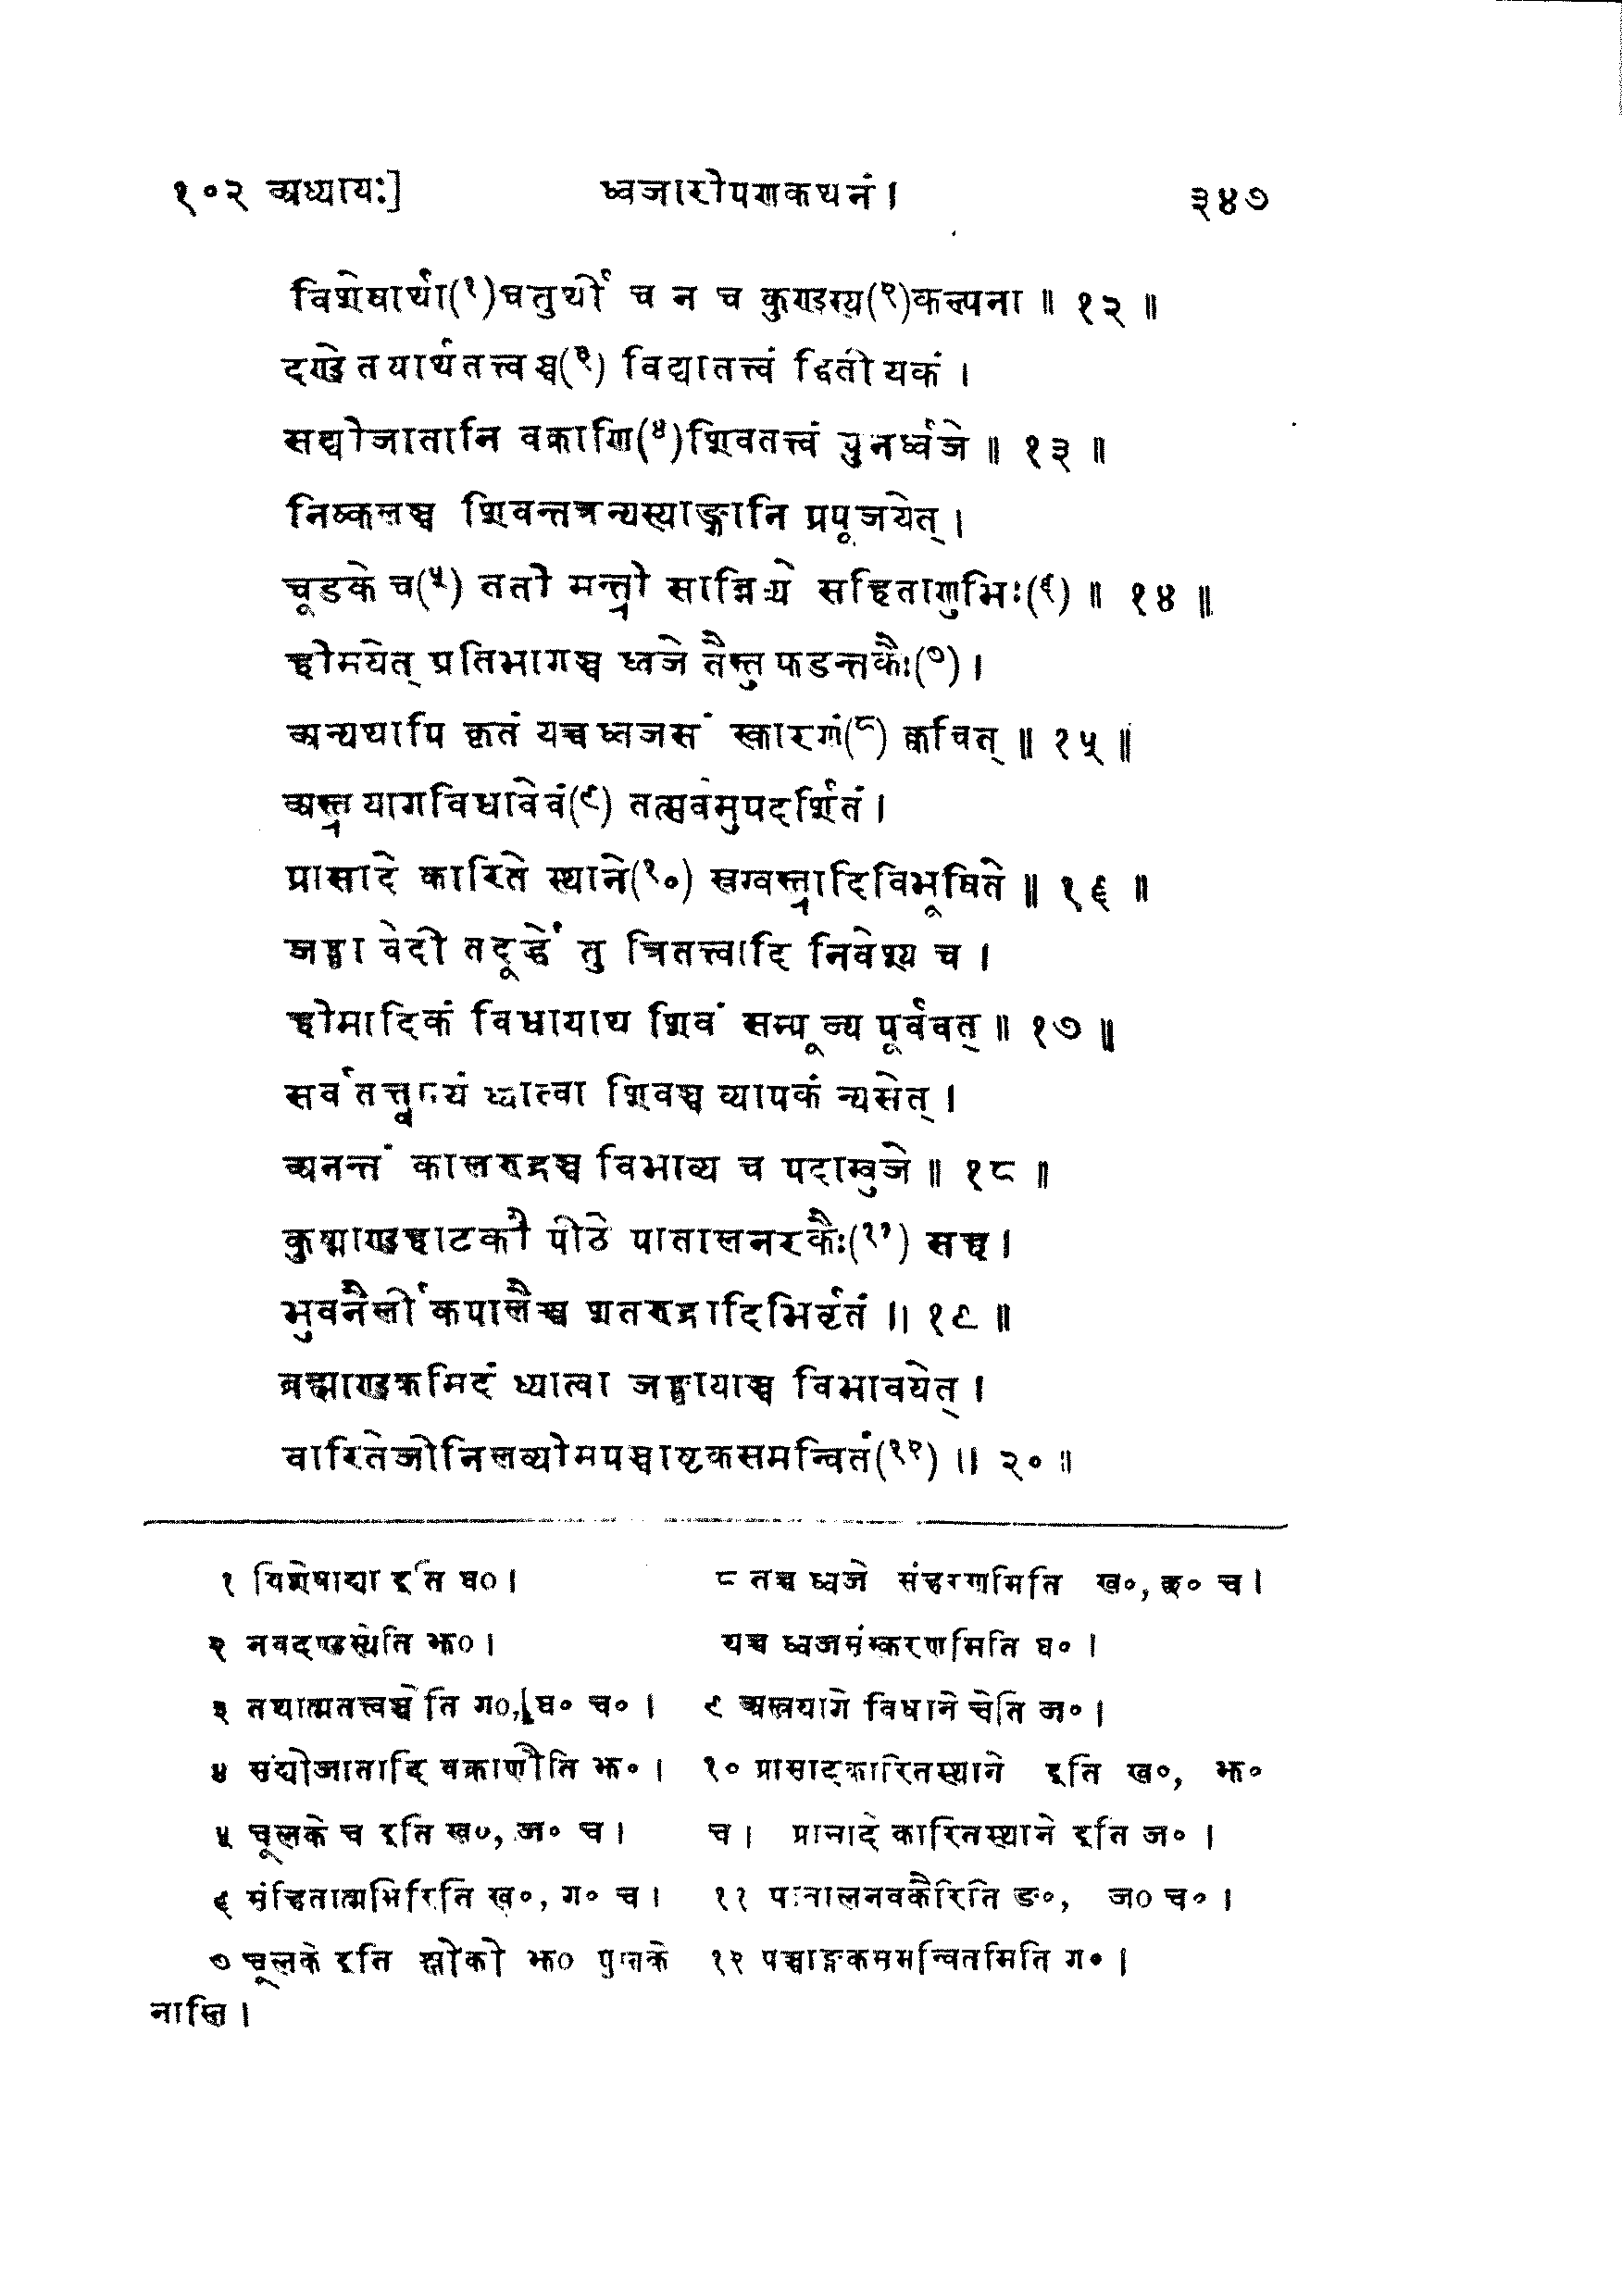 १०२ अध्यायः] ध्वजारोपणकथनं। ३४७
विशेषार्था(१)चतुर्थी च न च कुण्डस्य(२)कल्पना ॥ १२ ॥
दण्डे तयार्थतत्त्वञ्च(३) विद्यातत्त्वं द्वितीयकं ।
सद्योजातानि वक्राणि(४)शिवतत्त्वं पुनर्ध्वजे ॥ १३ ॥
निष्कलञ्च शिवन्तत्रन्यस्याङ्गानि प्रपूजयेत् ।
चूडके च(५) ततो मन्त्री सान्निध्ये सहिताणुभिः(६) ॥ १४ ॥
होमयेत् प्रतिभागञ्च ध्वजे तैस्तु फडन्तकैः(७) ।
अन्यथापि कृतं यच्च ध्वजसं स्कारणं(८) क्वचित् ॥ १५ ॥
अस्त्रयागविधावेवं(९) तत्सर्वमुपदर्शितं ।
प्रासादे कारिते स्थाने(१०) स्रग्वस्त्रादिविभूषिते ॥ १६ ॥
जङ्घा वेदी तदूर्द्धे तु त्रितत्त्वादि निवेश्य च ।
होमादिकं विधायाथ शिवं सम्पूज्य पूर्ववत् ॥ १७ ॥
सर्वतत्त्वमयं ध्यात्वा शिवञ्च व्यापकं न्यसेत् ।
अनन्तं कालरुद्रञ्च विभाव्य च पदाम्बुजे ॥ १८ ॥
कुष्माण्डहाटकौ पीठे पातालनरकैः(११) सह ।
भुवनैर्लोकपालैश्च शतरुद्रादिभिर्वृतं ॥ १९ ॥
ब्रह्माण्डकमिदं ध्यात्वा जङ्घायाञ्च विभावयेत् ।
वारितेजोनिलव्योमपञ्चाष्टकसमन्वितं(१२) ॥ २० ॥
१ विशेषाद्या इति घ० ।
२ नवदण्डस्येति झ० ।
३ तथात्मतत्त्वञ्चेति ग०, घ० च० ।
४ सद्योजातादि वक्राणीति झ० ।
५ चूलके च इति ख०, ज० च ।
६ संहितात्मभिरिति ख०, ग० च ।
७ चूलके इति श्लोको झ० पुस्तके
नास्ति ।
८ तच्च ध्वजे संहरणमिति ख०, छ० च ।
यच्च ध्वजसंस्करणमिति घ० ।
९ अस्त्रयागे विधाने चेति ज० ।
१० प्रासादकारितस्थाने इति ख०, झ०
च । प्रासादे कारितस्थाने इति ज० ।
११ पातालनवकैरिति ङ०, ज० च० ।
१२ पञ्चाङ्गकसमन्वितमिति ग० ।